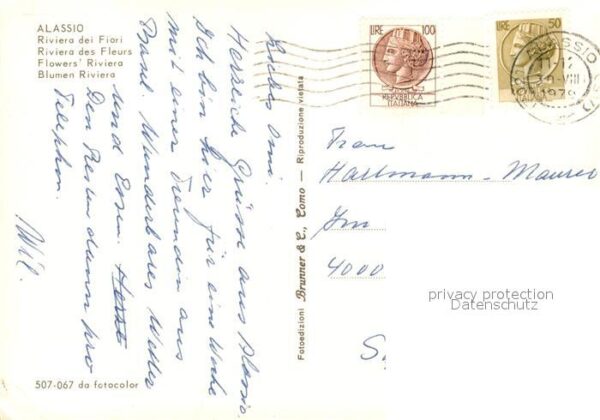 ALASSIO
Riviera dei Fiori
Riviera des Fleurs
Flowers' Riviera
Blumen Riviera
LIRE 100
REPUBBLICA
ITALIANA
LIRE 50
ALASSIO
VIII
Liebes Omi.
Herzliche Grüsse aus Alassio.
Ich bin hier für eine Woche
mit einer Freundin aus
Basel. Wunderbares Wetter
und Essen.
Den Rest dann per
Telephon.
Fotoedizioni Brunner & C., Como — Riproduzione vietata
Frau
Hartmann-Maurer
Im
4000
S
privacy protection
Datenschutz
507-067 da fotocolor